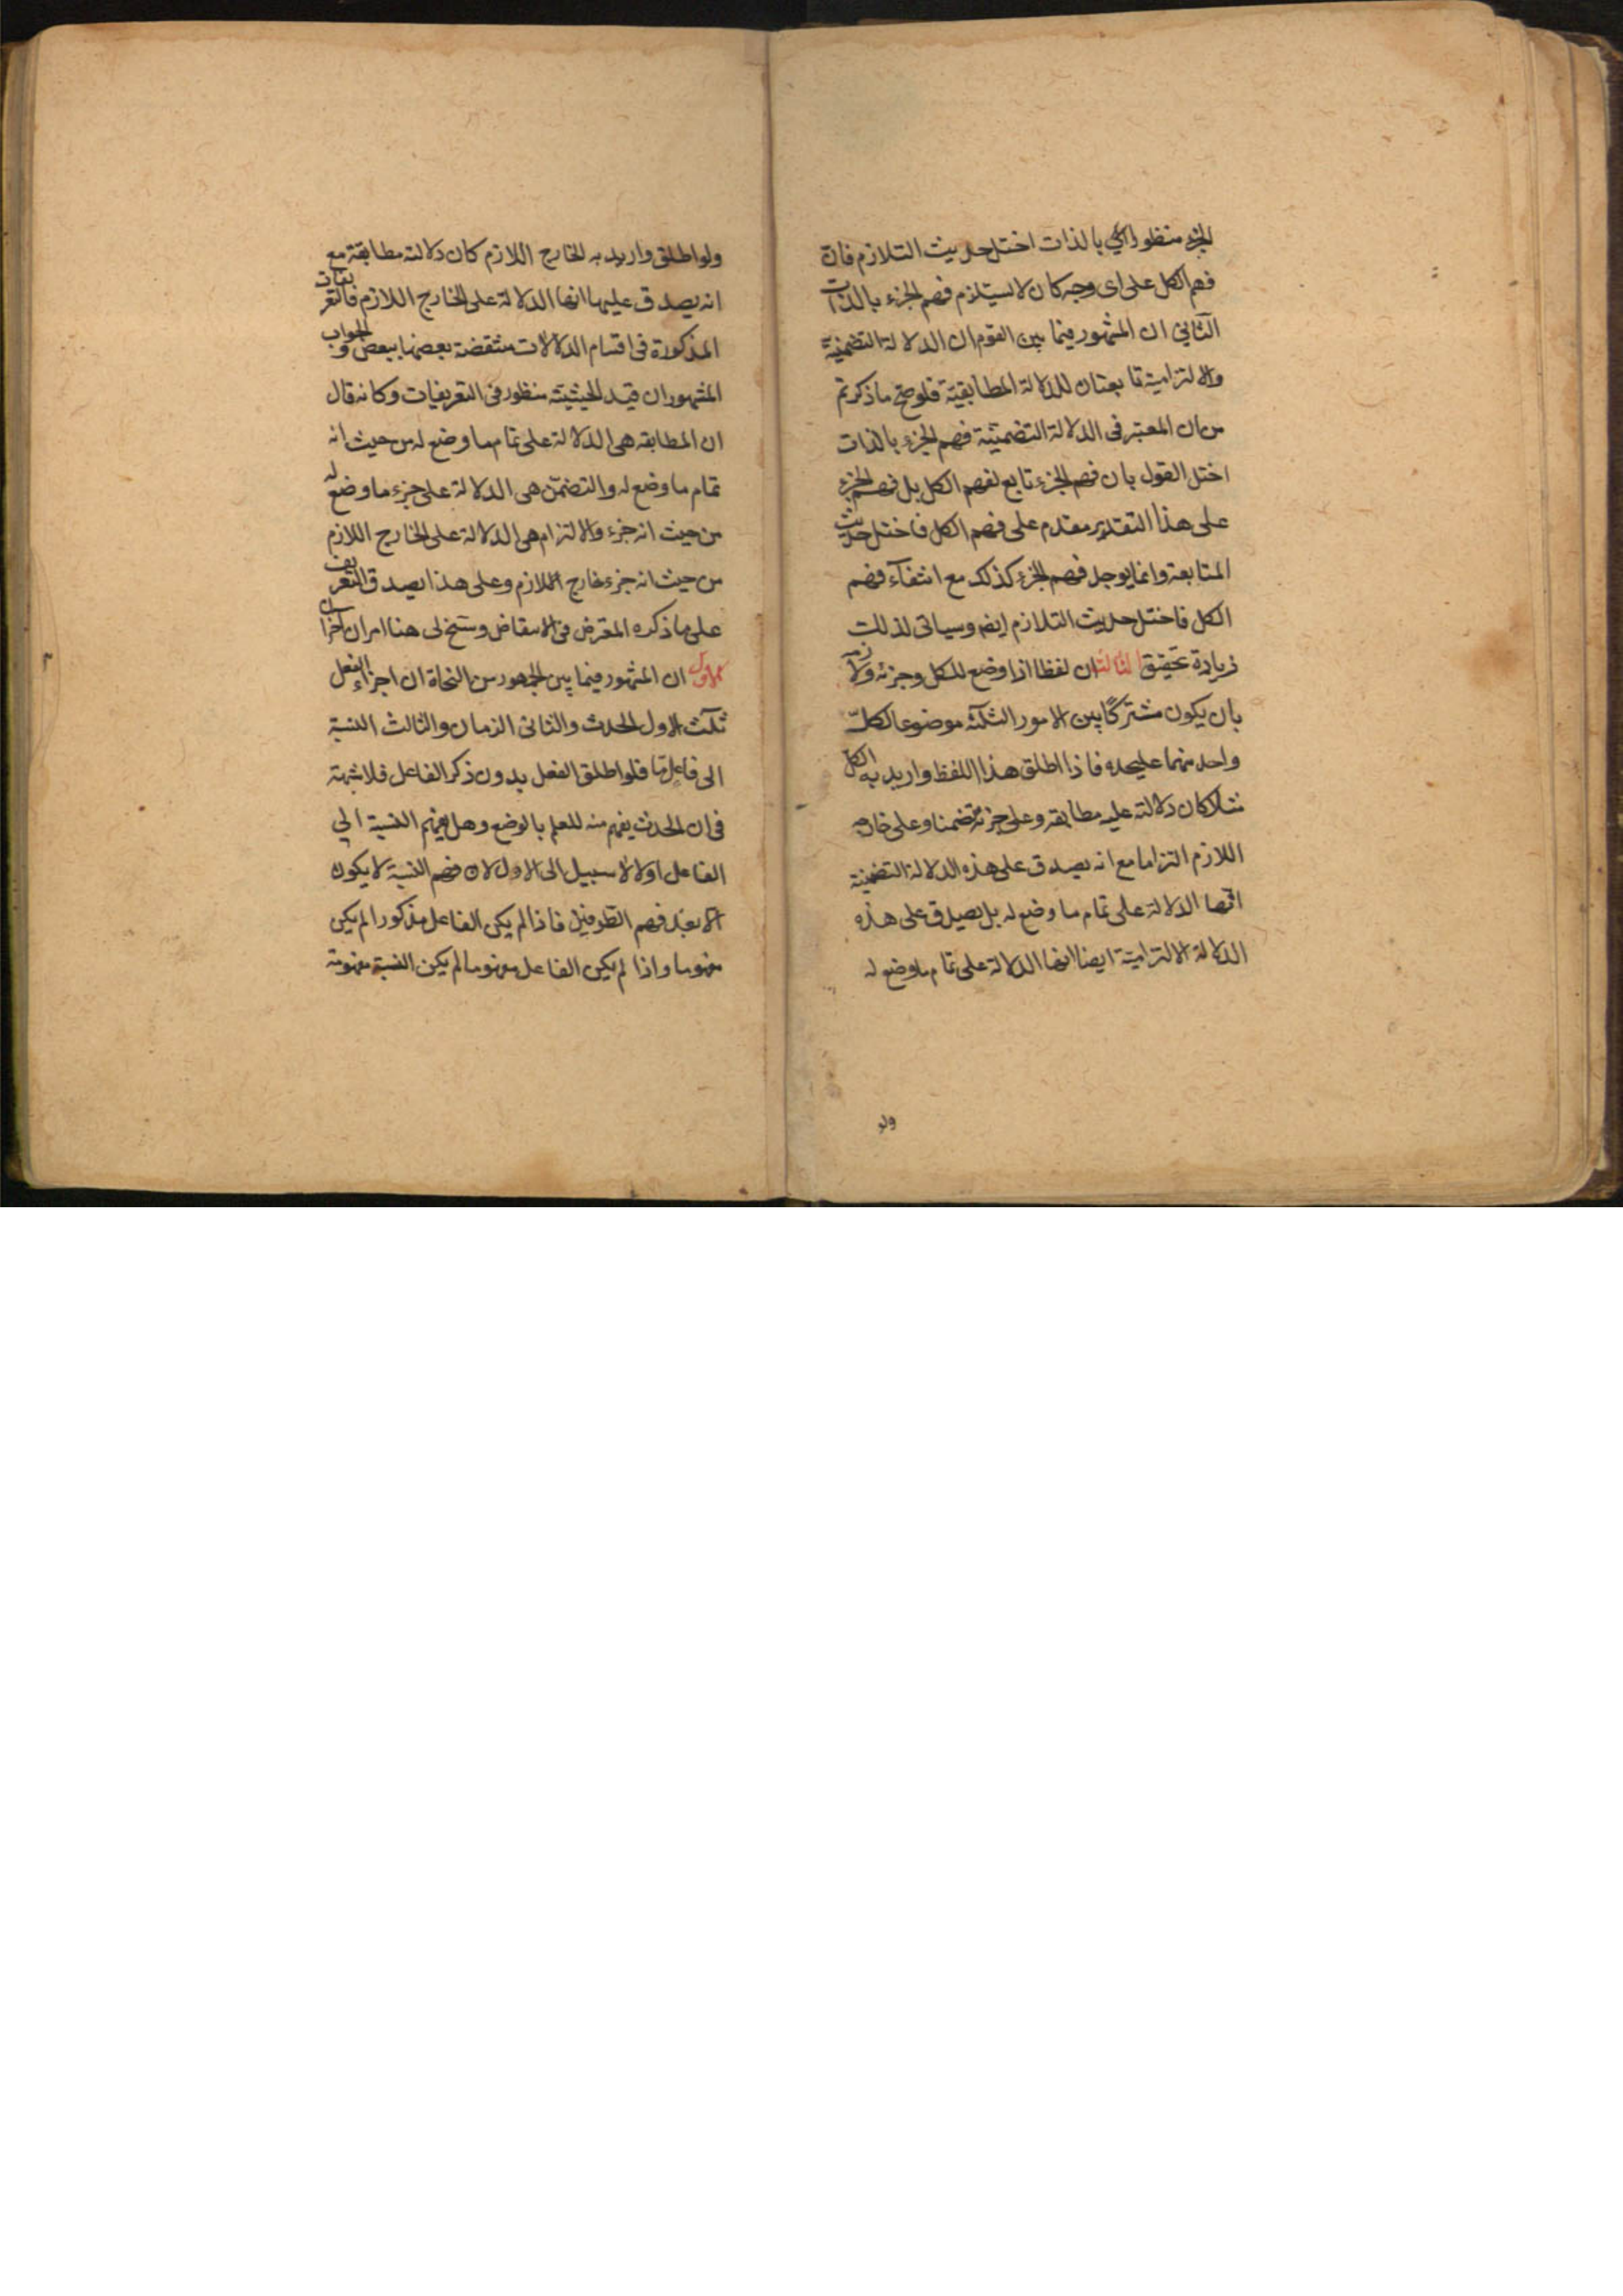 الجزء منظورا اليه بالذات اختل حديث التلازم فان
فهم الكل على اى وجه كان لا يستلزم فهم الجزء بالذات
الثانى ان المشهور فيما بين القوم ان الدلالة التضمنية
والالتزامية تابعتان للدلالة المطابقية فلو صح ما ذكرتم
من ان المعتبر فى الدلالة التضمنية فهم الجزء بالذات
اختل القول بان فهم الجزء تابع لفهم الكل بل فهم الجزء
على هذا التقدير مقدم على فهم الكل فاختل حديث
المتابعة وانما يوجد فهم الجزء كذلك مع انتفآء فهم
الكل فاختل حديث التلازم ايضا وسياتى لذلك
زيادة تحقيق الثالث ان لفظا اذا وضع للكل وجزئه ولازمه
بان يكون مشتركًا بين الامور الثلثة موضوعا لكلّ
واحد منهما عليحده فاذا اطلق هذا اللفظ واريد به الكل
مثلا كان دلالته عليه مطابقه وعلى جزئه تضمنا وعلى خارجه
اللازم التزاما مع انه يصدق على هذه الدلالة التضمنية
انها الدلالة على تمام ما وضع له بل يصدق على هذه
الدلالة الالتزامية ايضا انها الدلالة على تمام ما وضع له
ولو
ولو اطلق واريد به الخارج اللازم كان دلالته مطابقة مع
انه يصدق عليها انها الدلالة على الخارج اللازم فالتعريفات
المذكورة فى اقسام الدلالات منتقضة بعضها ببعض والجواب
المشهور ان قيد الحيثيته منظور فى التعريفات وكانه قال
ان المطابقه هى الدلالة على تمام ما وضع له من حيث انه
تمام ما وضع له والتضمّن هى الدلالة على جزء ما وضع له
من حيث انه جزء والالتزام هى الدلالة على الخارج اللازم
من حيث انه جزء خارج اللازم وعلى هذا يصدق التعريف
على ما ذكره المعترض فى الانتقاض وسنح لى هنا امران اخران
الاول ان المشهور فيما بين الجمهور من النحاة ان اجزاء الفعل
ثلث الاول الحدث والثانى الزمان والثالث النسبة
الى فاعل ما فلو اطلق الفعل بدون ذكر الفاعل فلا شبهة
فى ان الحدث يفهم منه للعلم بالوضع وهل يفهم النسبة الى
الفاعل اولا لا سبيل الى الاول لان فهم النسبة لا يكون
الا بعد فهم الطرفين فاذا لم يكن الفاعل مذكورا لم يكن
مفهوما واذا لم يكن الفاعل مفهوما لم يكن النسبة مفهومة